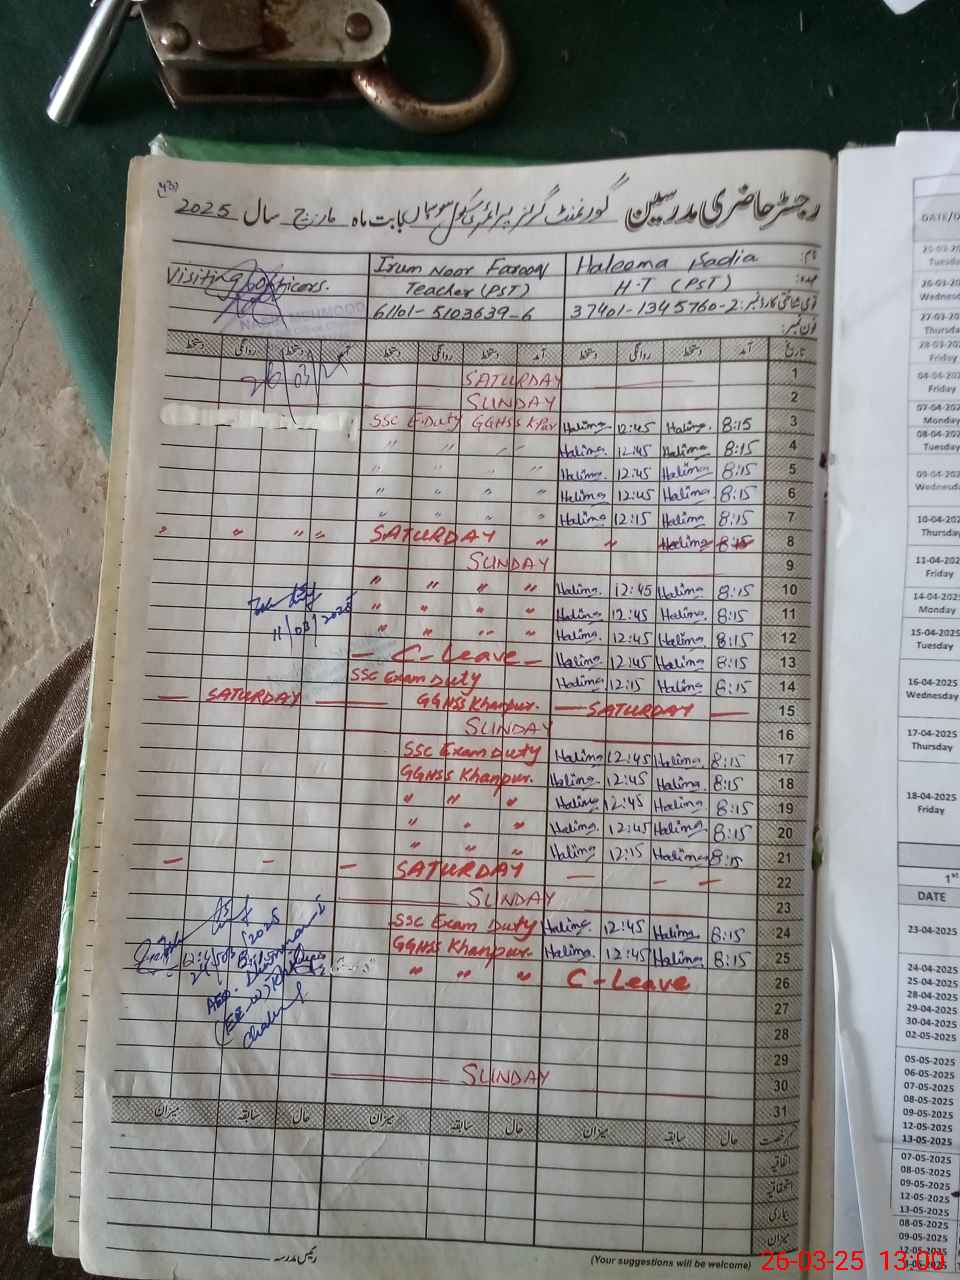 رجسٹر حاضری مدرسین گورنمنٹ گرلز پرائمری سکول بابت ماہ مارچ سال 2025
نام: Haleema Sadia Irum Noor Farooq
عہدہ: H.T (PST) Teacher (PST) Visiting Officers.
قومی شناختی کارڈ نمبر: 37401-1345760-2 61101-5103639-6
فون نمبر:
تاریخ آمد دستخط روانگی دستخط آمد دستخط روانگی دستخط آمد دستخط روانگی دستخط
1 SATURDAY 26/03/
2 SUNDAY
3 8:15 Halima 12:45 Halima SSC E.Duty GGHSS Kpur
4 8:15 Halima 12:45 Halima " " " "
5 8:15 Halima 12:45 Halima " " " "
6 8:15 Halima 12:45 Halima " " " "
7 8:15 Halima 12:15 Halima " " " "
8 8:15 Halima " SATURDAY " " " "
9 SUNDAY
10 8:15 Halima 12:45 Halima " " " "
11 8:15 Halima 12:45 Halima " " " " 11/03/2025
12 8:15 Halima 12:45 Halima " " " "
13 8:15 Halima 12:45 Halima - C-Leave -
14 8:15 Halima 12:15 Halima SSC Exam Duty
15 — SATURDAY — GGHSS Khanpur. — SATURDAY —
16 SUNDAY
17 8:15 Halima 12:45 Halima SSC Exam Duty
18 8:15 Halima 12:45 Halima GGHSS Khanpur.
19 8:15 Halima 12:45 Halima " " "
20 8:15 Halima 12:45 Halima " " "
21 8:15 Halima 12:15 Halima " " "
22 — — — SATURDAY — — —
23 SUNDAY
24 8:15 Halima 12:45 Halima SSC Exam Duty
25 8:15 Halima 12:45 Halima GGHSS Khanpur. 24/03/2025
26 C-Leave " " " AEO.
27
28
29
30 SUNDAY
31
رخصت حال سابقہ میزان حال سابقہ میزان حال سابقہ میزان
اتفاقیہ
استحقاقیہ
بیماری
میزان
رئیس مدرسہ
(Your suggestions will be welcome)
26-03-25 13:00
DATE/D
Tuesday
Wednesd
Thursda
Friday
Friday
07-04-202
Monday
08-04-202
Tuesday
09-04-202
Wednesda
10-04-202
Thursday
11-04-202
Friday
14-04-2025
Monday
15-04-2025
Tuesday
16-04-2025
Wednesday
17-04-2025
Thursday
18-04-2025
Friday
1st
DATE
23-04-2025
24-04-2025
25-04-2025
28-04-2025
29-04-2025
30-04-2025
02-05-2025
05-05-2025
06-05-2025
07-05-2025
08-05-2025
09-05-2025
12-05-2025
13-05-2025
07-05-2025
08-05-2025
09-05-2025
12-05-2025
13-05-2025
08-05-2025
09-05-2025
12-05-2025